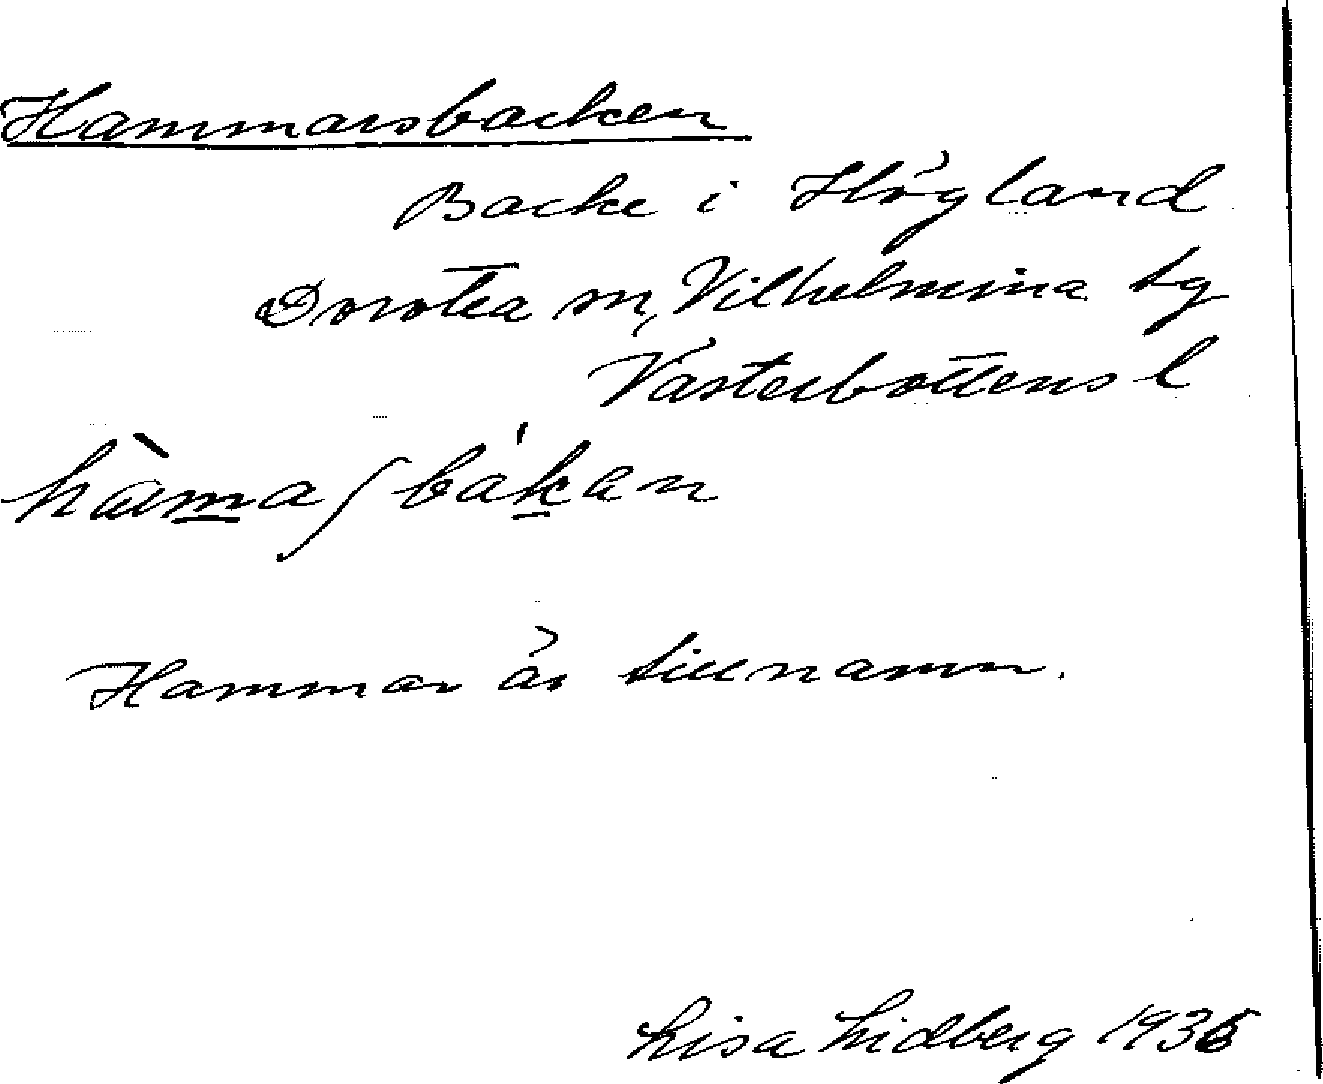 Hammarsbacken
Backe i Högland
Dorotea sn, Vilhelmina tg
Västerbottens l
hàmaʃbákan
Hammar är tillnamn.
Lisa Lidberg 1936